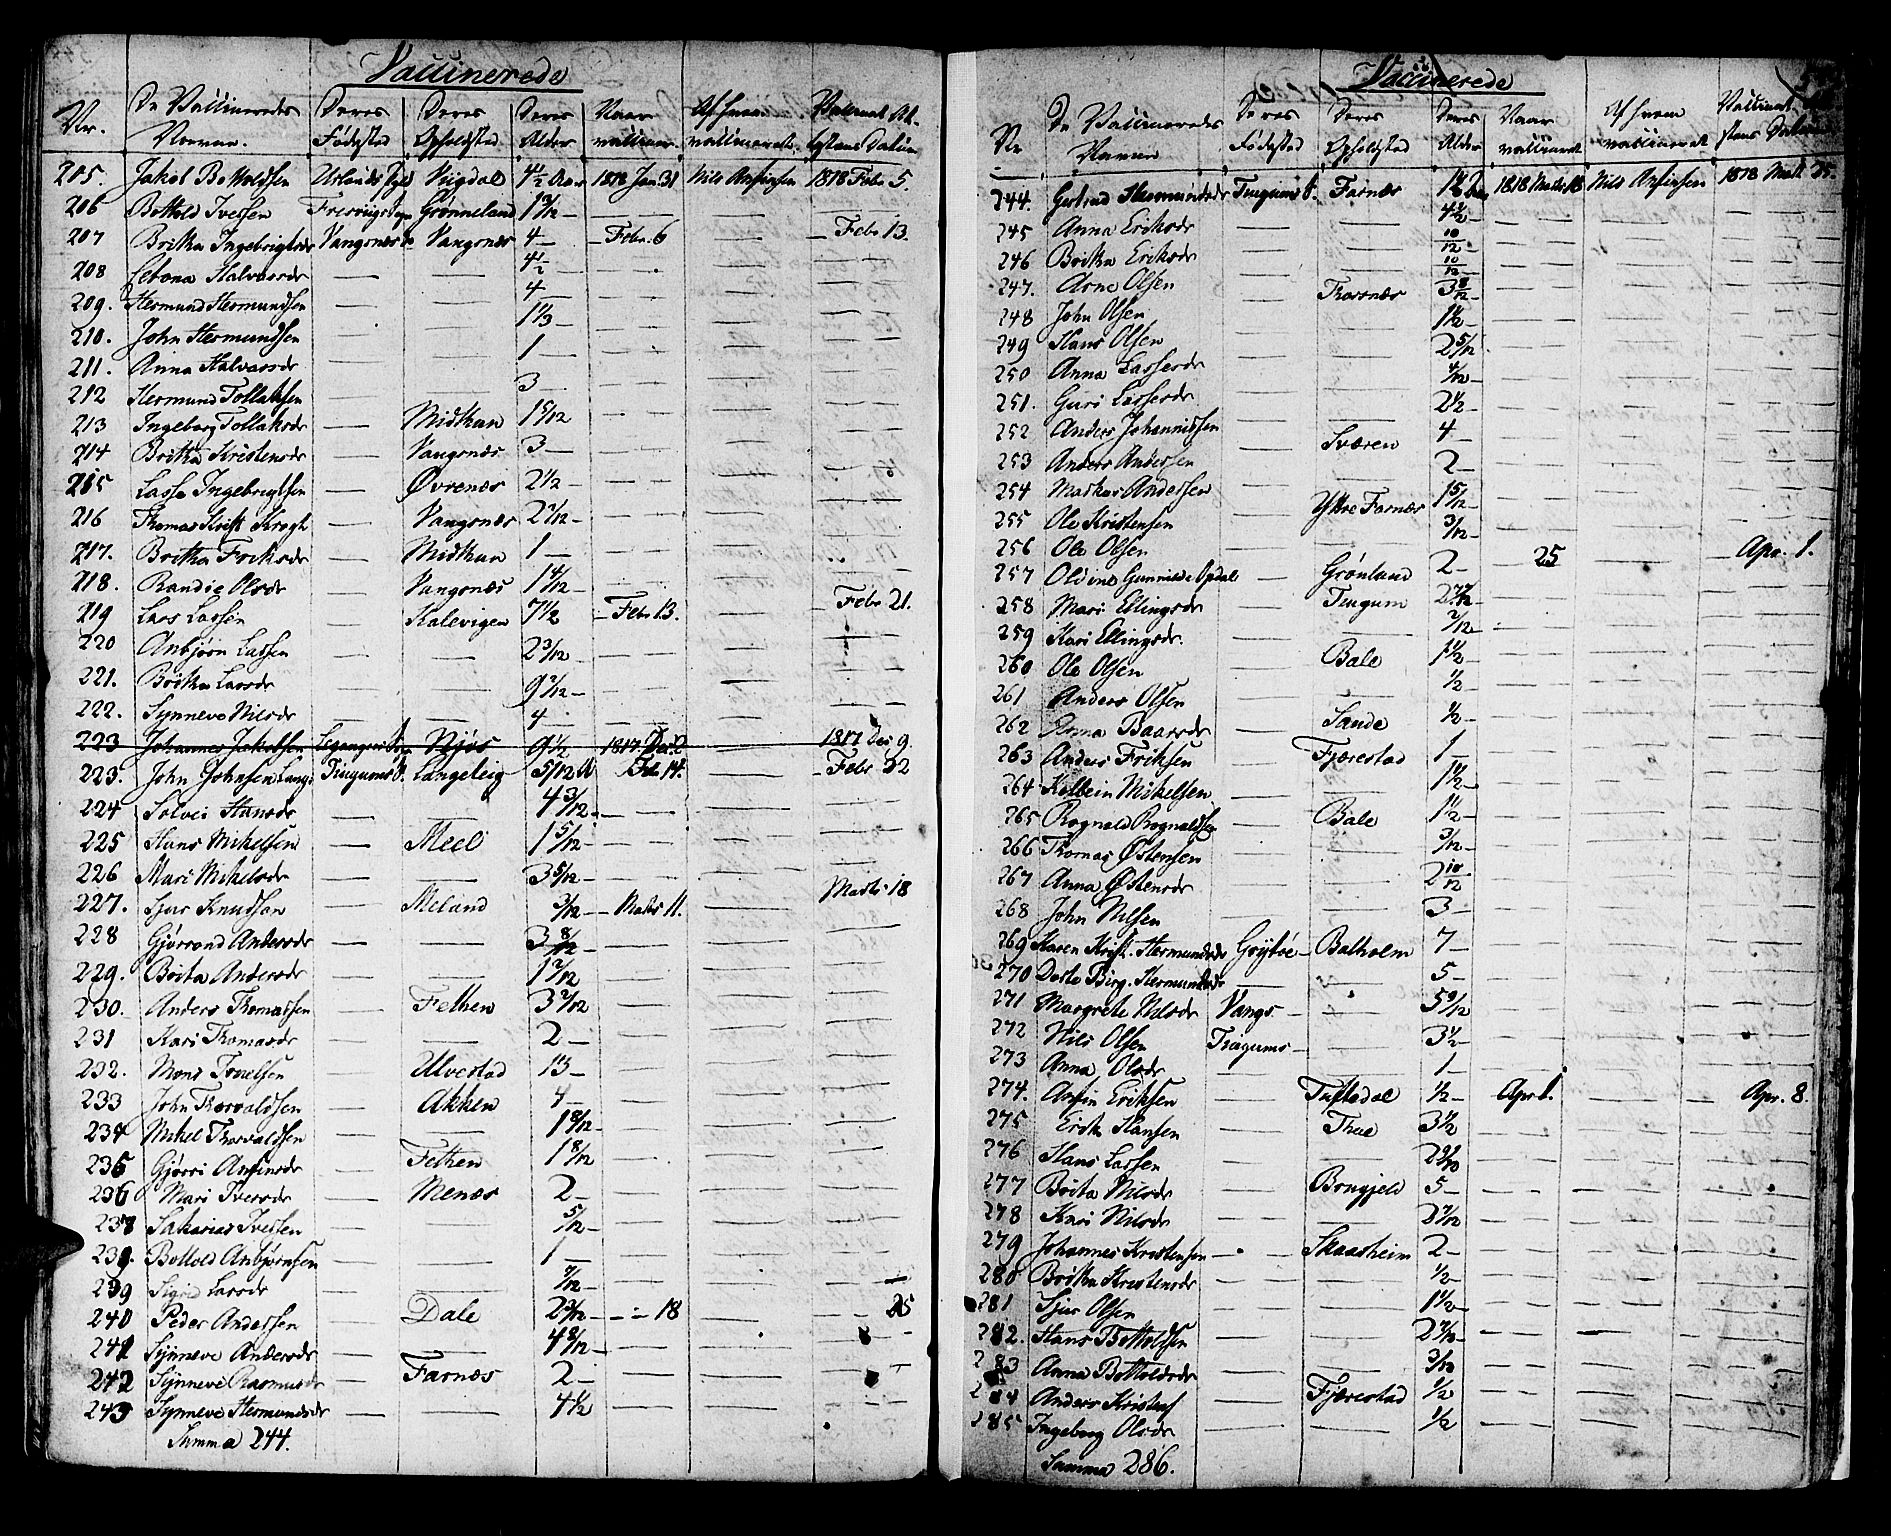 Vaccinerede
Nr. De Vaccineredes Navne. Deres Fødested Deres Opholdsted Deres Alder Naar vaccineret Af hvem vaccineret Vaccinat. At- testens Datum
205. Jakob Bottoldsen Urlands Prgld 4 1/2 Aar 1818 Jan. 31 Nils Ansinsen 1818 Febr. 5.
206 Bottold Iversen Grønneland — — —
207 Britha Ingebrigtsdr Vangsnæs Vangsnæs 4 — — Febr. 6 — — Febr. 13.
208 Halvorsdr — — 4 1/2 — — —
209. Hermund Hermundsen — — 4 — — — —
210. John Hermundsen — — 1 1/3 — — — —
211. Anna Halvorsdr — — 1 — — — —
212 Hermund Tollaksen — — 3 — — — —
213 Ingeborg Tollaksdr — Midthun 1 5/12 — — —
214 Britha Kristensdr — Vangsnæs 3 — — — —
215 Lasse Ingebrigtsen — Øvrenæs 2 1/2 — — — —
216 Thomas Krist Krogh — Vangsnæs — — — —
217. Britha Eriksdr — Midthun 1 — — — —
218. Randie Olsdr — Vangsnæs 1 4/12 — — — —
219 Lars Lassen — Kalevigen 7 1/2 — Febr. 13. — — Febr. 21.
220 Anbjørn Lassen — — 2 3/12 — — — —
221. Britha Larsdr — — 9 2/12 — — — —
222. Synneve Nilsdr — — 4 — — — —
223 Johannes Jakobsen Njøs 9 1/2 1817 Dec. 2 1817 Dec. 9.
223. John Johnsen Tiugums S. Langeteig 5/12 Febr. 14. — — Febr. 22
224 Solvei Hansdr — — 4 3/12 — — — —
225 Hans Mikelsen — Meel 1 5/12 — — — —
226 Mari Mikelsdr — — 3 5/12 — — — —
227. Sjur Knudsen — Meland 3/12 — Marts 11. — Marts 18
228 Gjørrond Andersdr — — 3 8/12 — — —
229. Brita Andersdr — — 1 2/12 — — —
230. Anders Thomassen — Fethen 3 2/12 — — —
231 Kari Thomasdr — — 2 — — — —
232. Mons — Ulvestad — — —
233 John Thorvaldsen — Akken 4 — — — —
234 Mikel Thorvaldsen — — 1 8/12 — — — —
235 Gjørri Ansinsdr — Fethen 1 8/12 — — —
236 Mari Iversdr — Menæs 2 — — — —
237 Sakarias Iversen — — 5/12 — — — —
238. Bottold Anbjørnsen — — 1 — — — —
239 Sigrid Larsdr — — — — — —
240 Peder Andersen — Dale 2 3/12 — — 18 — — 25
241 Synneve Andersdr — — 4 8/12 — — — —
242 Synneve Rasmusdr — Farnæs 2 — — — —
243 Synneve Hermundsdr — — 4 1/2 — — —
Summa 244.
Vaccinerede
Nr De Vaccineredes Navne Deres Fødested Deres Opholdsted Deres Alder Naar vaccineret Af hvem vaccineret Vaccinat. At- testens Datum
244. Gertrud Hermundsdr Tiugums S. Farnæs 1 1/2 Aar 1818 Marts 18 Nils Ansinsen 1818 Marts 25.
245 Anna Eriksdr — — 4 1/2 — — — —
246 Britha Eriksdr — — 10/12 — — —
247. Arne Olsen — — 10/12 — — — —
248 John Olsen — Thorsnæs 3 8/12 — — — —
249 Hans Olsen — — 1 1/2 — — — —
250 Anna Lassesdr — — 2 5/12 — — —
251. Guri Lassesdr — — 4/12 — — — —
252 Anders Johannissen — — 2 1/2 — — — —
253 Anders Andersen — Sværen 4 — — — —
254 Markus Andersen — — 2 — — — —
255 Ole Kristensen — Yttre Farnæs 1 5/12 — — —
256 Ole Olsen — — 3/12 — — — —
257 Oldine Gunnilde Opdal — Grønland 2 — — 25 — — Apr. 1.
258 Mari Ellingsdr — Tiugum — — —
259 Kari Ellingsdr. — — 2/12 — — — —
260 Ole Olsen — Bale 1 1/2 — — — —
261 Anders Olsen — — 1/2 — — — —
262 Anna Baarsdr — Sande 1/2 — — — —
263 Anders Eriksen — Fjærestad 1 — — — —
264 Kolbein Mikelsen — — 1 1/2 — — — —
265 Rognald Rognaldsen — Bale 1 1/2 — — — —
266 Thomas Østensen — — 3/12 — — — —
267 Anna Østensdr — — 2 10/12 — — —
268 John Nilsen — — 3 — — — —
269 Karen Krist. Hermundsdr Balholm 7 — — — —
270 Dorte Birg. Hermundsdr — — 5 — — — —
271 Margrete Nilsdr Vangs — — 5 9/12 — — —
272 Nils Olsen Tiugums — — 3 1/2 — — — —
273 Anna Olsdr — — 1 — — — —
274. Ansin Eriksen — Tuftedal 1/2 — Apr. 1. — — Apr. 8.
275 Erik Hansen — Thue 3 1/2 — — —
276 Hans Lassen — — — — —
277 Brita Nilsdr — 5 — — — —
278 Kari Nilsdr — — 2 7/12 — — —
279 Johannes Kristensen — — Skaasheim 2 — — — —
280 Britha Kristensdr — — 1/2 — — — —
281 Sjur Olsen — — 1 1/2 — — — —
282. Hans Bottoldsen — — — — —
283 Anna Bottoldsdr — — 3/12 — — —
284 Anders Kristens — Fjærestad 1/2 — — —
285 Ingeborg Olsdr — — 1/2 — — —
Summa 286.